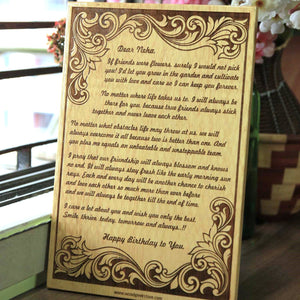 Dear Neha,
If friends were flowers, surely I would not pick
you! I'd let you grow in the garden and cultivate
you with love and care so I can keep you forever.
No matter where life takes us to, I will always be
there for you because true friends always stick
together and never leave each other.
No matter what obstacles life may throw at us, we will
always overcome it all because two is better than one. And
you plus me equals an unbeatable and unstoppable team.
I pray that our friendship will always blossom and knows
no end. It will always stay fresh like the early morning sun
rays. Each and every day will be another chance to cherish
and love each other so much more than ever before
and we will always be together till the end of time.
I care a lot about you and wish you only the best.
Smile, thrive today, tomorrow and always..!!
Happy Birthday to You.